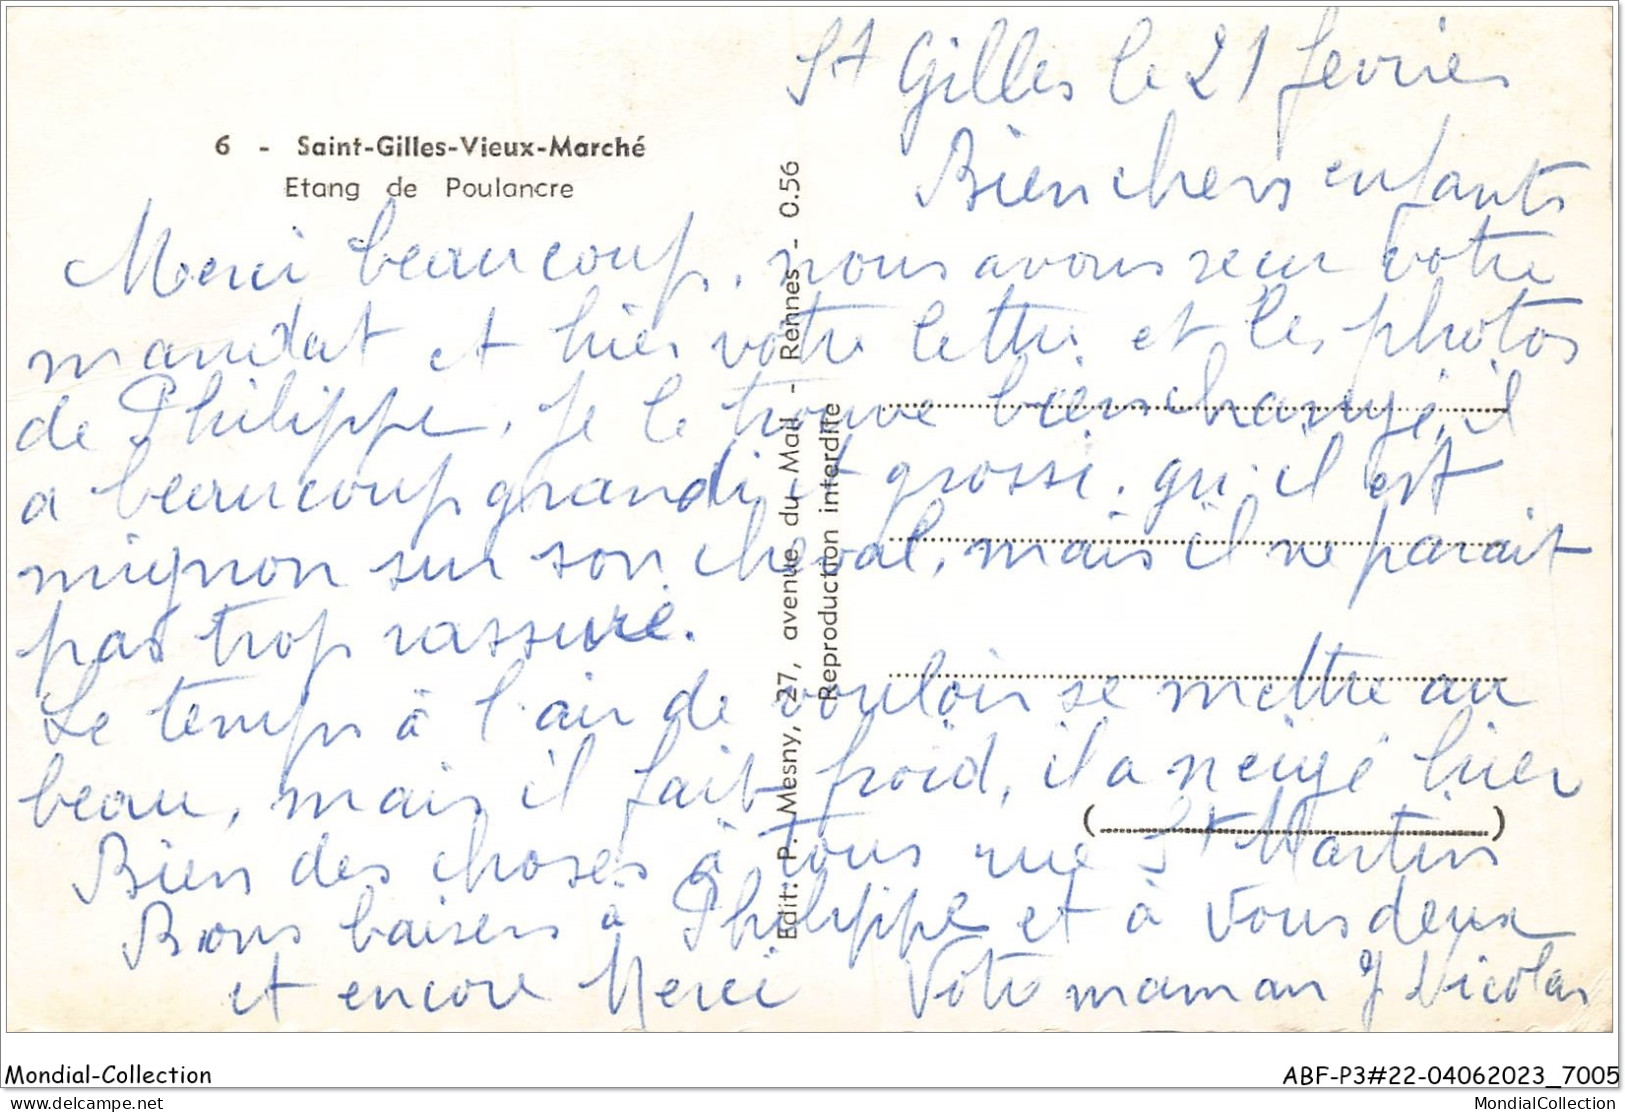 St Gilles le 21 fevrier
6 - Saint-Gilles-Vieux-Marché
Etang de Poulancre
Bien chers enfants
Merci beaucoup, nous avons recu votre
mandat et hier votre lettre et les photos
de Philippe, je le trouve bien changé, il
a beaucoup grandi et grossi. qu'il est
mignon sur son cheval, mais il ne parait
pas trop rassuré.
Le temps à l'air de vouloir se mettre au
beau, mais il fait froid, il a neigé hier
Bien des choses à tous rue St Martin
Bons baisers à Philippe et à vous deux
et encore Merci Votre maman J Nicolas
Edit. P. Mesny, 27, avenue du Mail - Rennes - 0.56
Reproduction interdite
(          )
Mondial-Collection
ABF-P3#22-04062023_7005
www.delcampe.net
MondialCollection